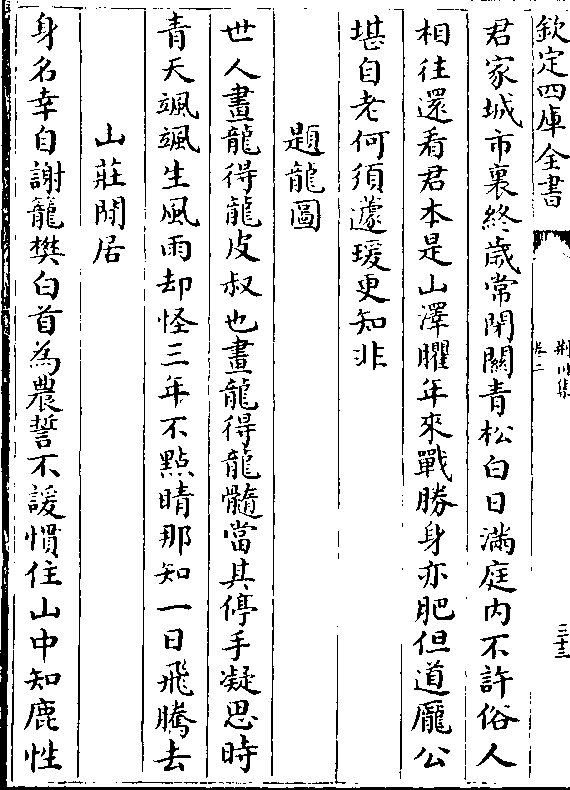 欽定四庫全書
荆川集
卷二
三十三
君家城市裏終歲常閉關青松白日滿庭內不許俗人
相往還看君本是山澤臞年來戰勝身亦肥但道龐公
堪自老何須蘧瑗更知非
題龍圖
世人畫龍得龍皮叔也畫龍得龍髓當其停手凝思時
青天颯颯生風雨却怪三年不點睛那知一日飛騰去
山莊閒居
身名幸自謝籠樊白首為農誓不諼慣住山中知鹿性